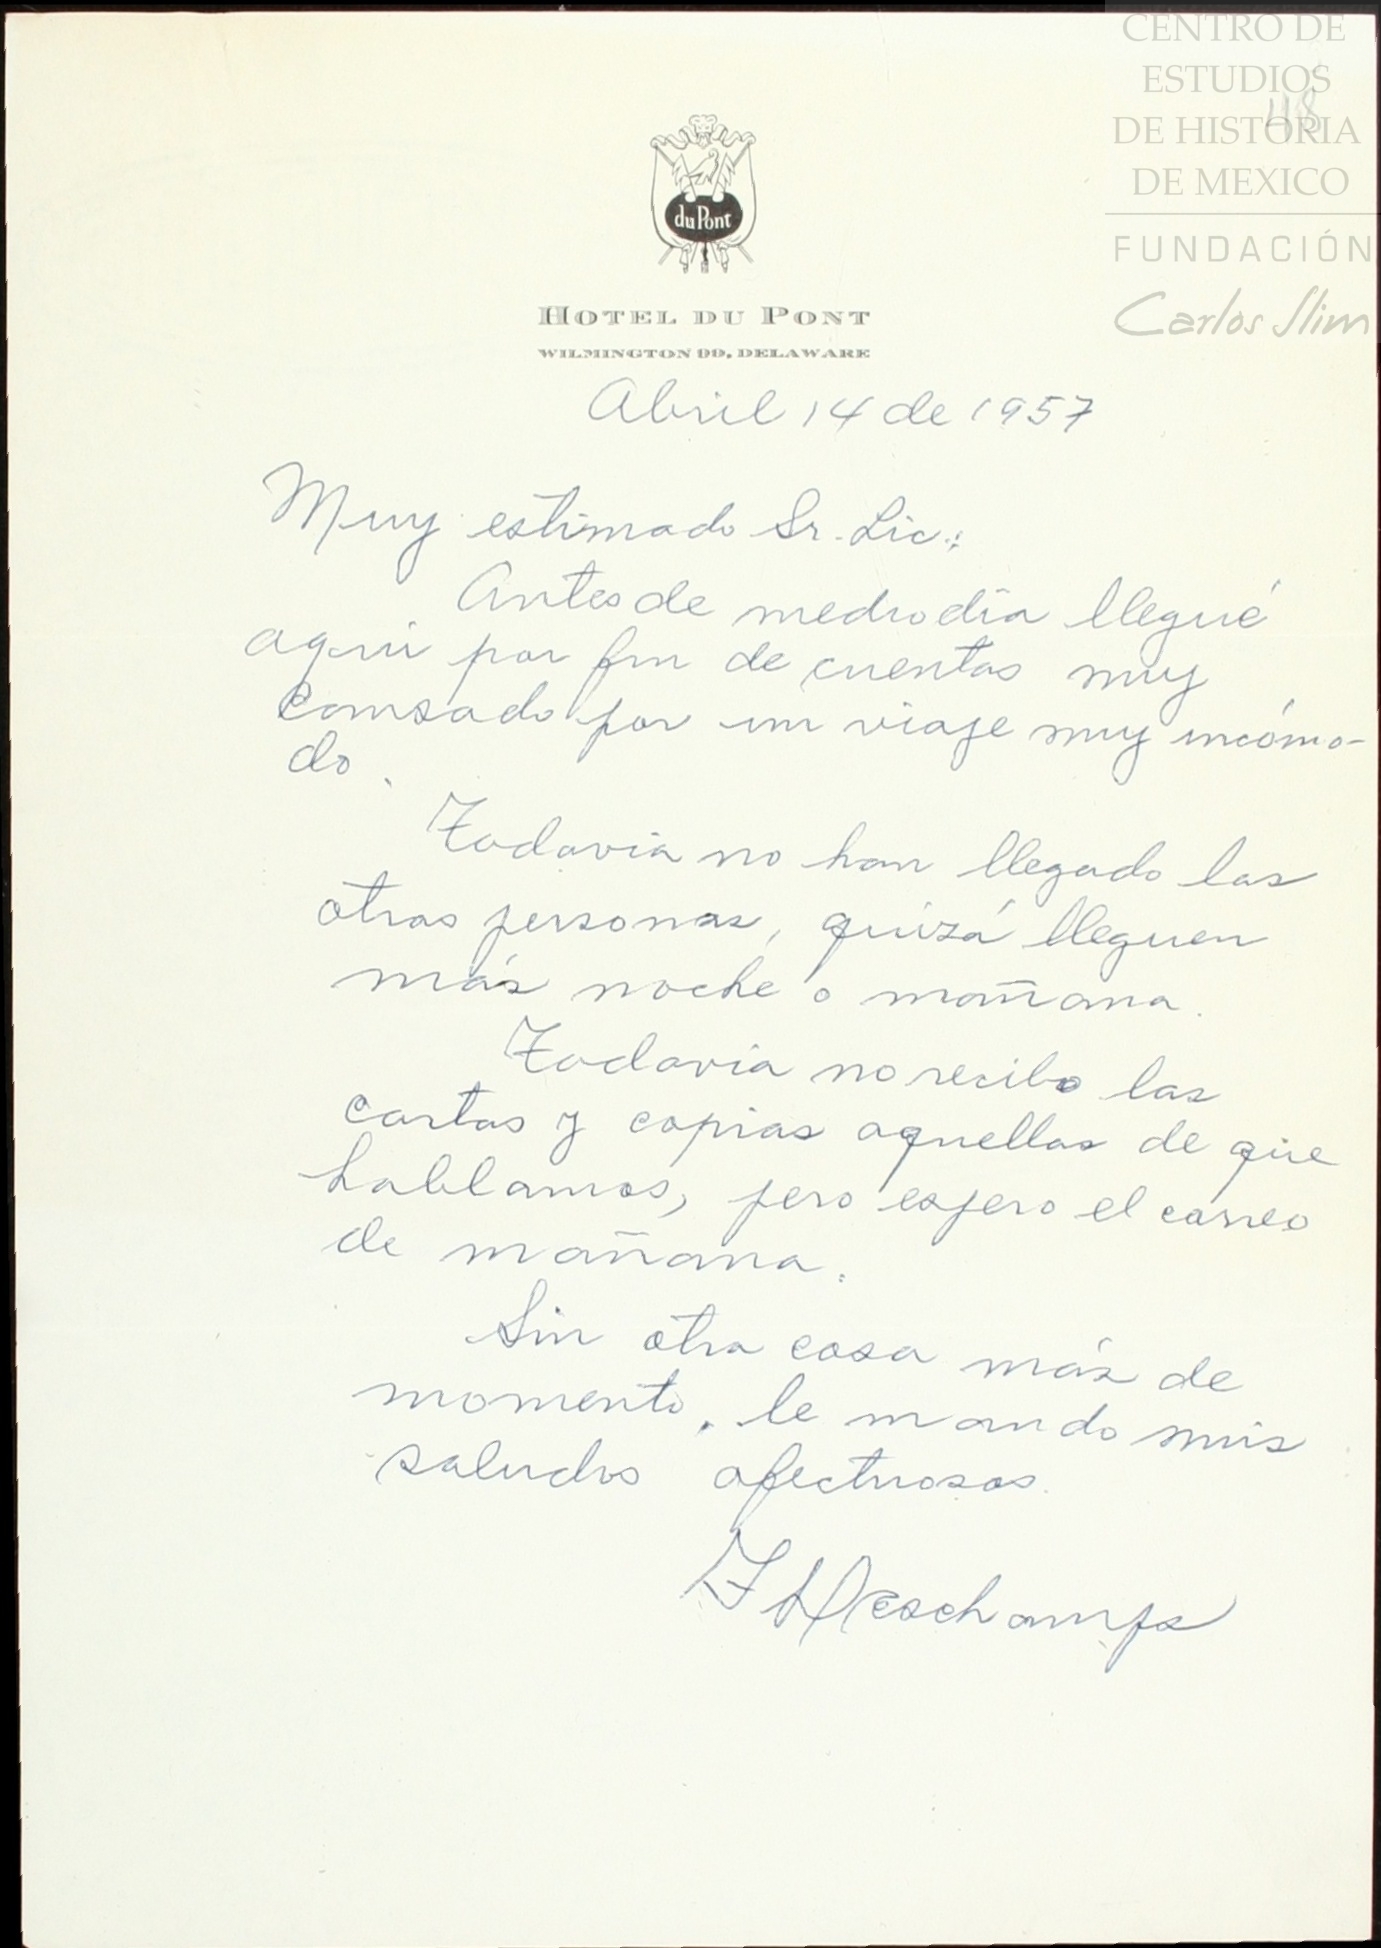 CENTRO DE
ESTUDIOS
DE HISTORIA
DE MEXICO
FUNDACIÓN
Carlos Slim
48
du Pont
HOTEL DU PONT
WILMINGTON 99, DELAWARE
Abril 14 de 1957
Muy estimado Sr. Lic.:
Antes de mediodía llegué
aqui por fin de cuentas muy
cansado por un viaje muy incómo-
do.
Todavia no han llegado las
otras personas, quizá lleguen
más noche o mañana.
Todavia no recibo las
cartas y copias aquellas de que
hablamos, pero espero el correo
de mañana.
Sin otra cosa más de
momento, le mando mis
saludos afectuosos.
Deschamps